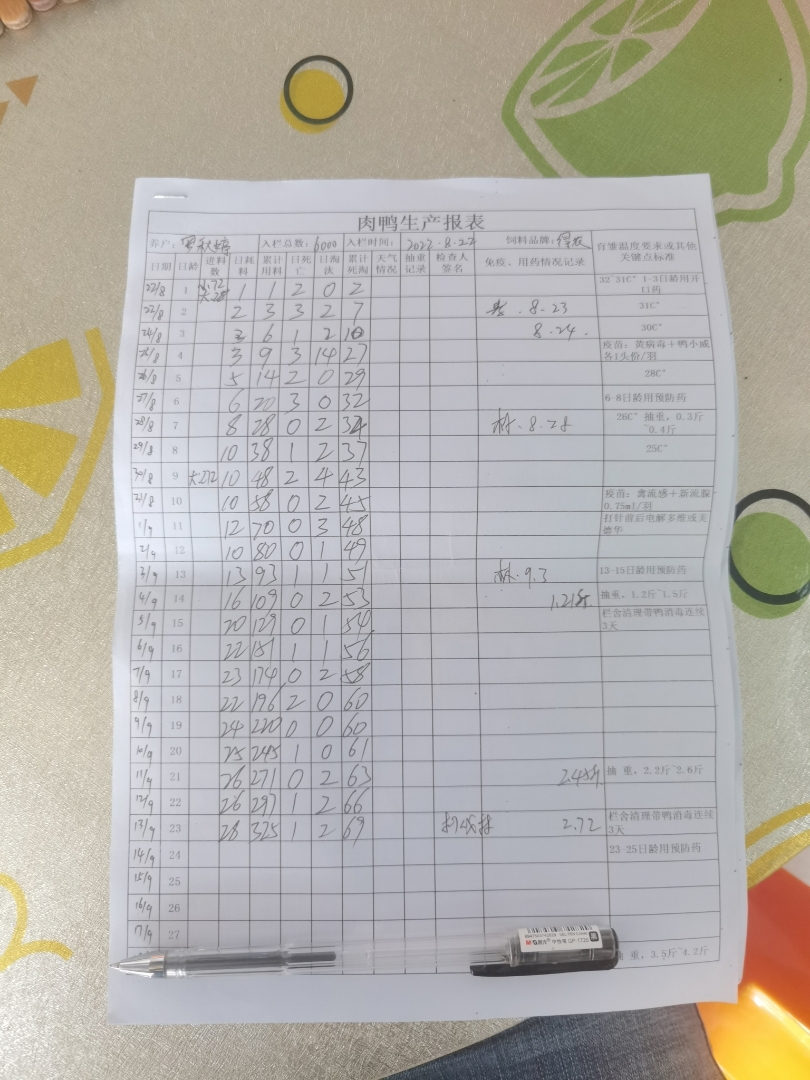 肉鸭生产报表
养户: 入栏总数: 6000 入栏时间: 2023.8.22 饲料品牌: 育雏温度要求或其他关键点标准
日期 日龄 进料数 日耗料 累计用料 日死亡 日淘汰 累计死淘 天气情况 抽重记录 检查人签名 免疫、用药情况记录
22/8 1 1 1 2 0 2 32~31C° 1-3日龄用开口药
23/8 2 2 3 3 2 7 8.23 31C°
24/8 3 3 6 1 2 10 8.24. 30C°
25/8 4 3 9 3 14 27 疫苗: 黄病毒+鸭小威各1头份/羽
26/8 5 5 14 2 0 29 28C°
27/8 6 6 20 3 0 32 6-8日龄用预防药
28/8 7 8 28 0 2 34 林.8.28 26C° 抽重, 0.3斤~0.4斤
29/8 8 10 38 1 2 37 25C°
30/8 9 大272 10 48 2 4 43
31/8 10 10 58 0 2 45 疫苗: 禽流感+新流腺 0.75ml/羽
1/9 11 12 70 0 3 48 打针前后电解多维或美德华
2/9 12 10 80 0 1 49
3/9 13 13 93 1 1 51 林.9.3 13-15日龄用预防药
4/9 14 16 109 0 2 53 1.21斤 抽重, 1.2斤~1.5斤
5/9 15 20 129 0 1 54 栏舍清理带鸭消毒连续3天
6/9 16 22 151 1 1 56
7/9 17 23 174 0 2 58
8/9 18 22 196 2 0 60
9/9 19 24 220 0 0 60
10/9 20 25 245 1 0 61
11/9 21 26 271 0 2 63 2.45斤 抽 重, 2.2斤~2.6斤
12/9 22 26 297 1 2 66
13/9 23 28 325 1 2 69 2.72 栏舍清理带鸭消毒连续3天
14/9 24 23-25日龄用预防药
15/9 25
16/9 26
17/9 27
抽 重, 3.5斤~4.2斤